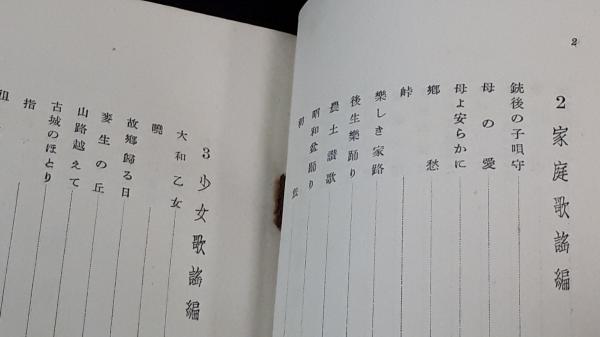 2
2 家庭歌謠編
銃後の子唄守
母の愛
母よ安らかに
鄕愁
峠
樂しき家路
後生樂踊り
農土讃歌
昭和盆踊り
初
3 少女歌謠編
大和乙女
曉
故鄕歸る日
麥生の丘
山路越えて
古城のほとり
指